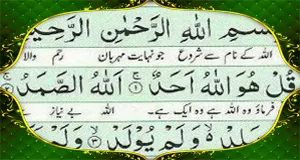 بِسْمِ اللهِ الرَّحْمٰنِ الرَّحِيْمِ
اللہ کے نام سے شروع جو نہایت مہربان رحم والا
قُلْ هُوَ اللهُ اَحَدٌ ۚ ۱ اَللهُ الصَّمَدُ ۚ
فرماؤ وہ اللہ ہے وہ ایک ہے۔ اللہ بے نیاز
يَلِدْ ۙ وَلَمْ يُوْلَدْ ۙ ۳ وَلَمْ